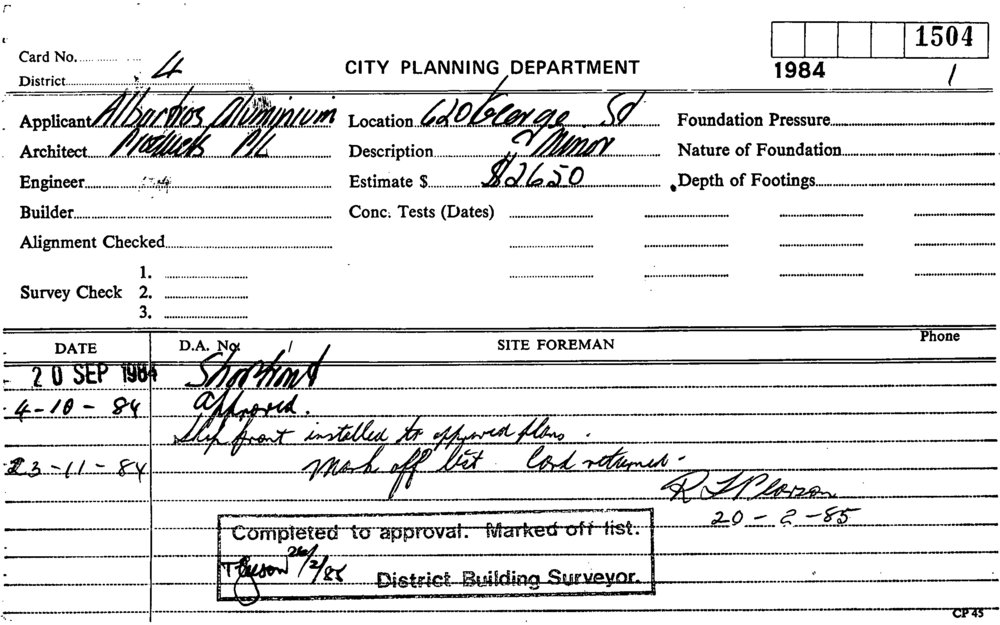 1504
Card No.
District 4
CITY PLANNING DEPARTMENT
1984 1
Applicant Albartros Aluminium
Location 620 George St
Foundation Pressure
Architect Products P/L
Description Minor
Nature of Foundation
Engineer
Estimate $ $2650
Depth of Footings
Builder
Conc. Tests (Dates)
Alignment Checked
1.
Survey Check 2.
3.
DATE D.A. No: / SITE FOREMAN Phone
20 SEP 1984 Shopfront
4-10-84 Approved.
Shop front installed to approved plans.
23-11-84 Mark off list Card returned-
20-2-85
Completed to approval. Marked off list.
26/2/85
District Building Surveyor.
CP 45